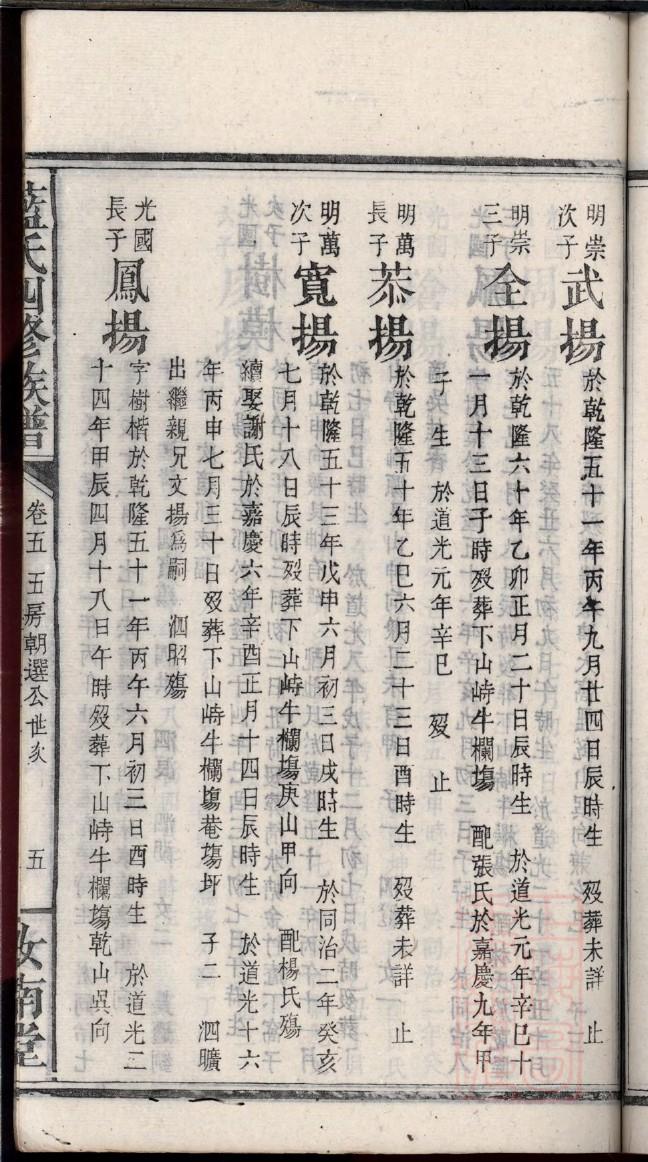 明崇次子武揚 於乾隆五十一年丙午九月廿四日辰時生 歿葬未詳 止
明崇三子全揚 於乾隆六十年乙卯正月二十日辰時生 於道光元年辛巳十
一月十三日子時歿葬下山峙牛欄塲 配張氏於嘉慶九年甲
子 生 於道光元年辛巳 歿 止
明萬長子恭揚 於乾隆五十年乙巳六月二十三日酉時生 歿葬未詳 止
明萬次子寬揚 於乾隆五十三年戊申六月初三日戌時生 於同治二年癸亥
七月十八日辰時歿葬下山峙牛欄塲庚山甲向 配楊氏殤
續娶謝氏於嘉慶六年辛酉正月十四日辰時生 於道光十六
年丙申七月三十日歿葬下山峙牛欄塲菴塲坪 子二 泗曠
出繼親兄文揚爲嗣 泗昭殤
光國長子鳳揚 字樹楷於乾隆五十一年丙午六月初三日酉時生 於道光二
十四年甲辰四月十八日午時歿葬下山峙牛欄塲乾山巽向
藍氏四修族譜 卷五 五房朝選公世系 五 汝南堂